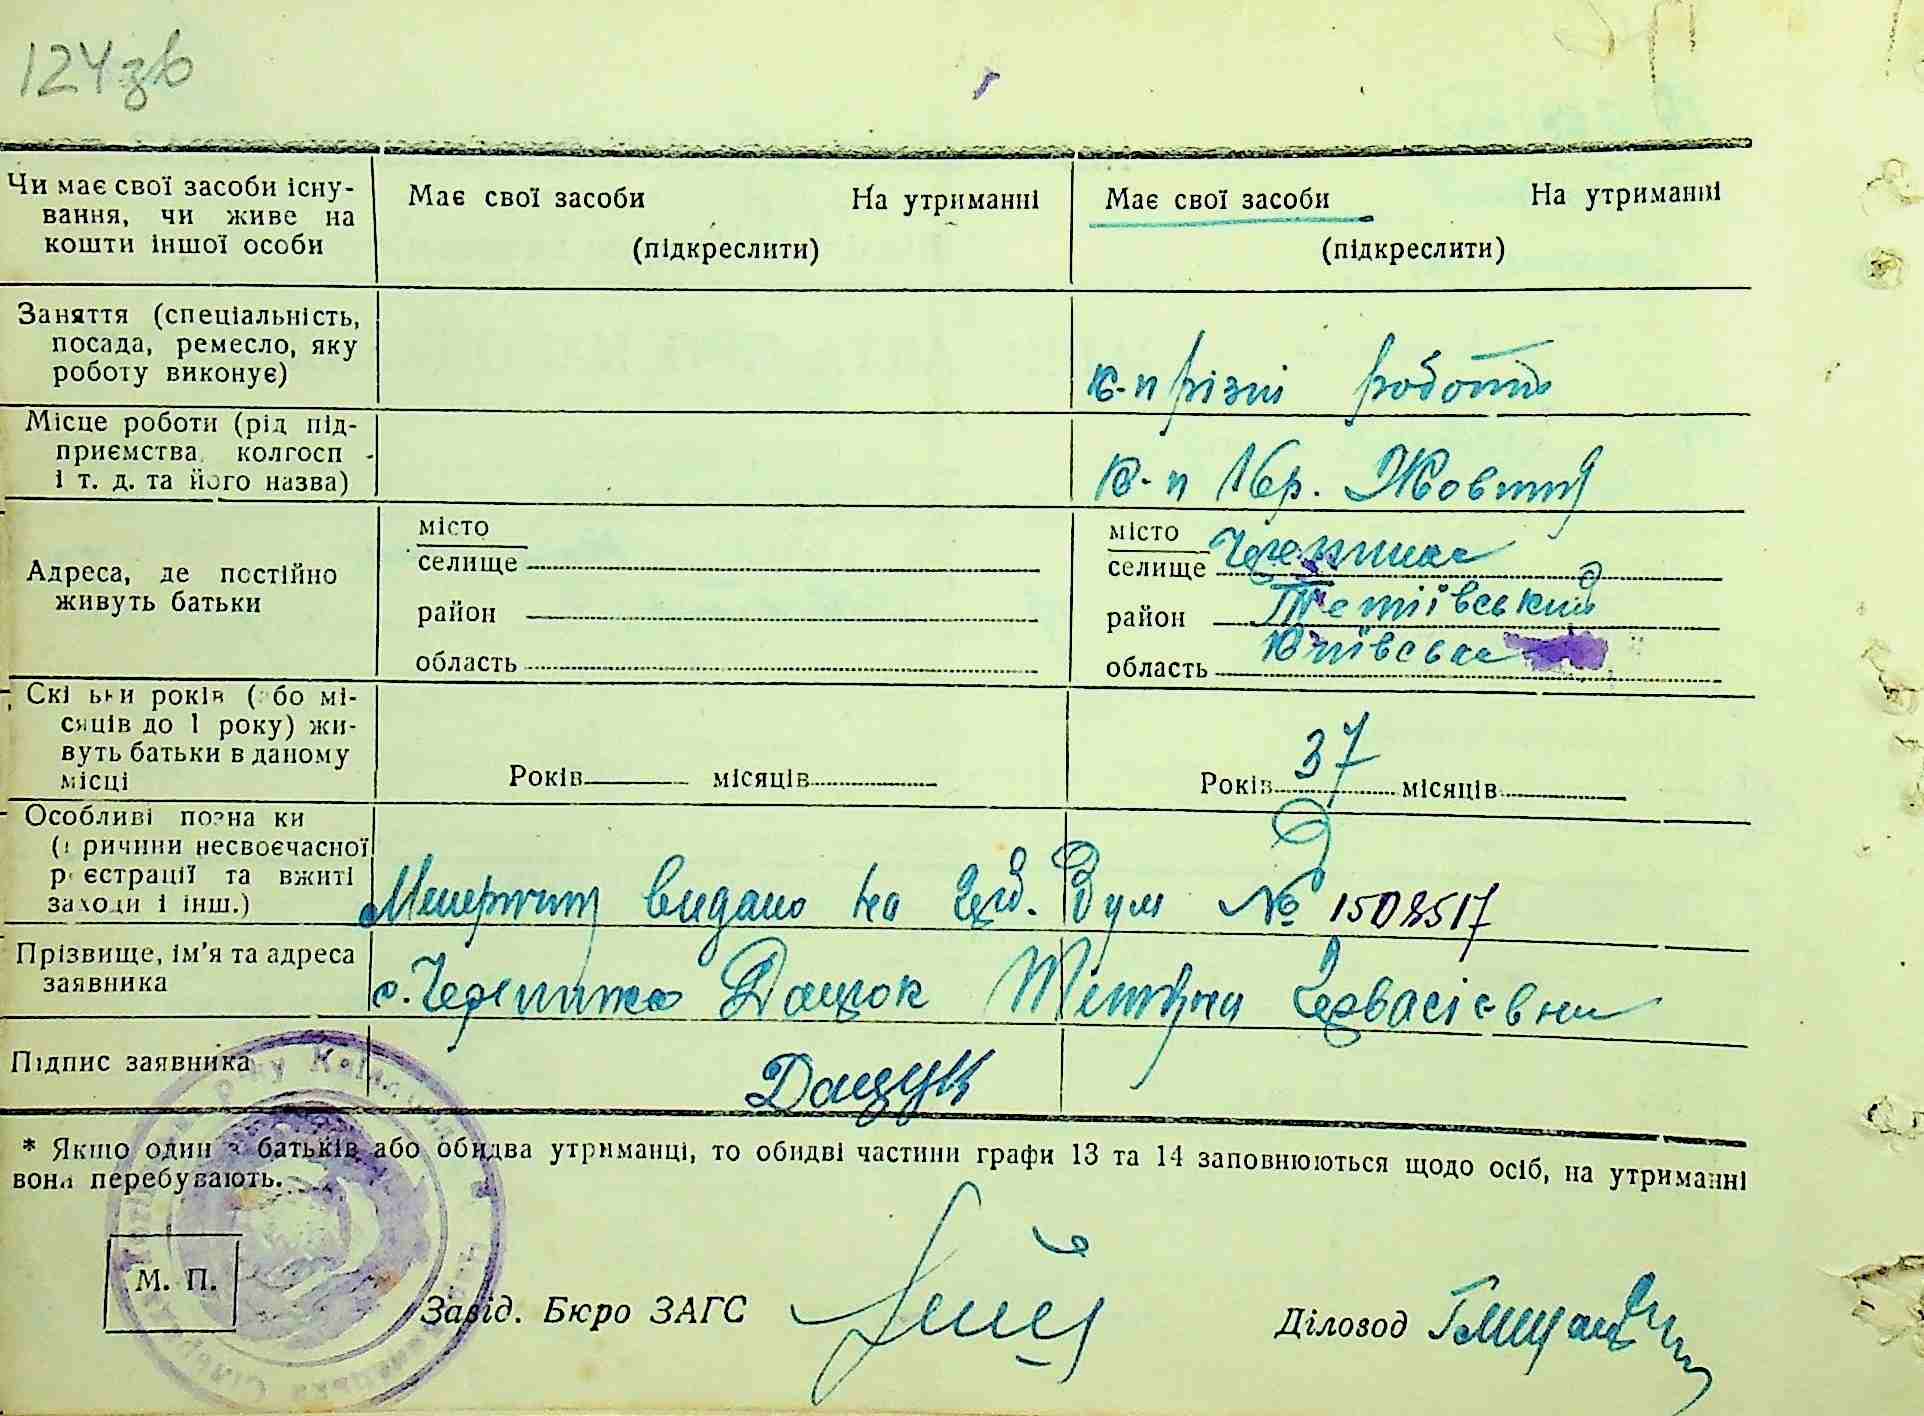 124зв
Чи має свої засоби існу-
вання, чи живе на
кошти іншої особи
Має свої засоби На утриманні
(підкреслити)
Має свої засоби На утриманні
(підкреслити)
Заняття (спеціальність,
посада, ремесло, яку
роботу виконує)
к-п різні роботи
Місце роботи (рід під-
приємства, колгосп
і т. д. та його назва)
к-п 16р. Жовтня
Адреса, де постійно
живуть батьки
місто
селище
район
область
місто
селище Черепинка
район Тетіївський
область Київська
Скі ьки років ( бо мі-
сяців до 1 року) жи-
вуть батьки в даному
місці
Років місяців
Років 37 місяців
Особливі позна ки
( ричини несвоєчасної
р єстрації та вжиті
заходи і інш.)
видано на Дум № 1508517
Прізвище, ім'я та адреса
заявника
с. Черепинка Дацюк Гервасієвна
Підпис заявника
Дацук
* Якшо один з батьків або обидва утриманці, то обидві частини графи 13 та 14 заповнюються щодо осіб, на утриманні
вони перебувають.
М. П.
Завід. Бюро ЗАГС
Діловод